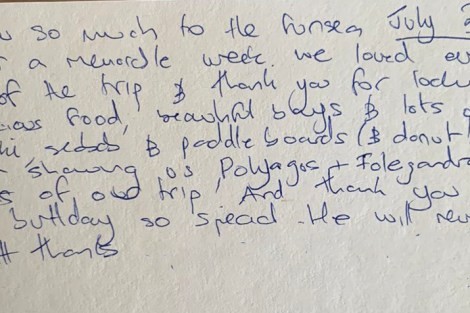 so much to the Funsea July
a memorable week. we loved
of the trip & thank you for
food, beautiful bays & lots
seabob & paddle boards (& donut
showing us Polyagos + Folegandr
of our trip, And thank you
birthday so special. He will
thanks